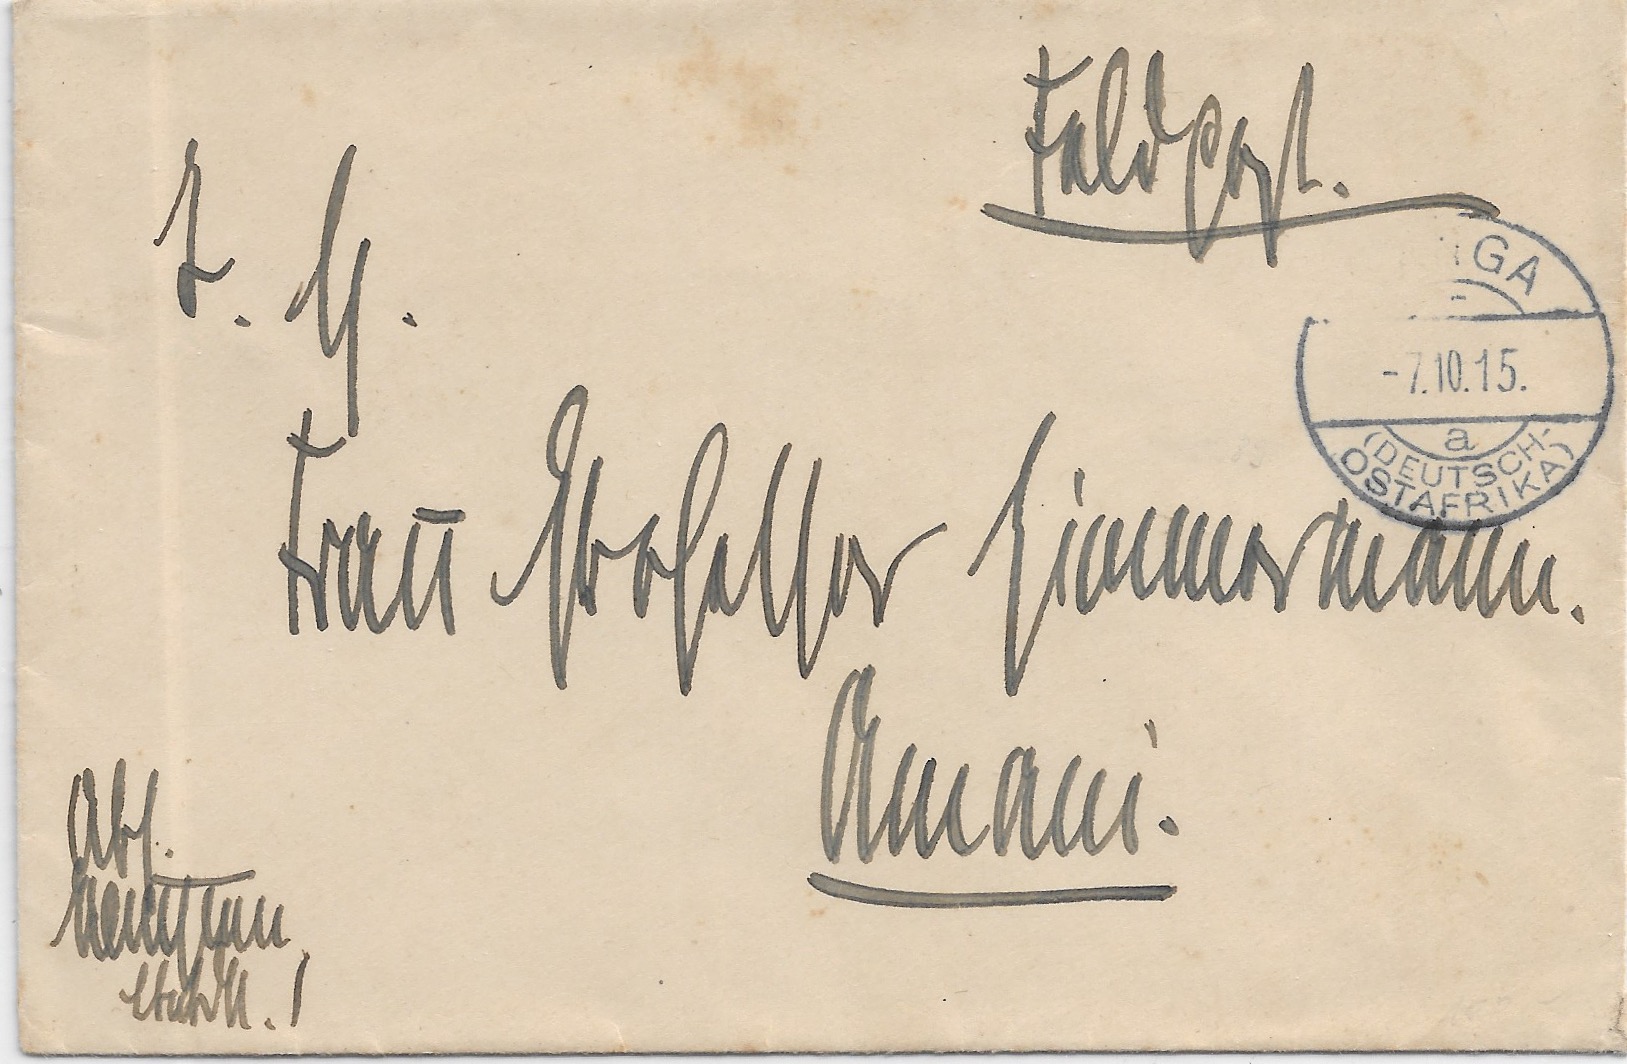 Feldpost.
I. H.
Frau Professor Zimmermann.
Amani.
Abs.
GA
-7.10.15.
a
(DEUTSCH-
OSTAFRIKA)